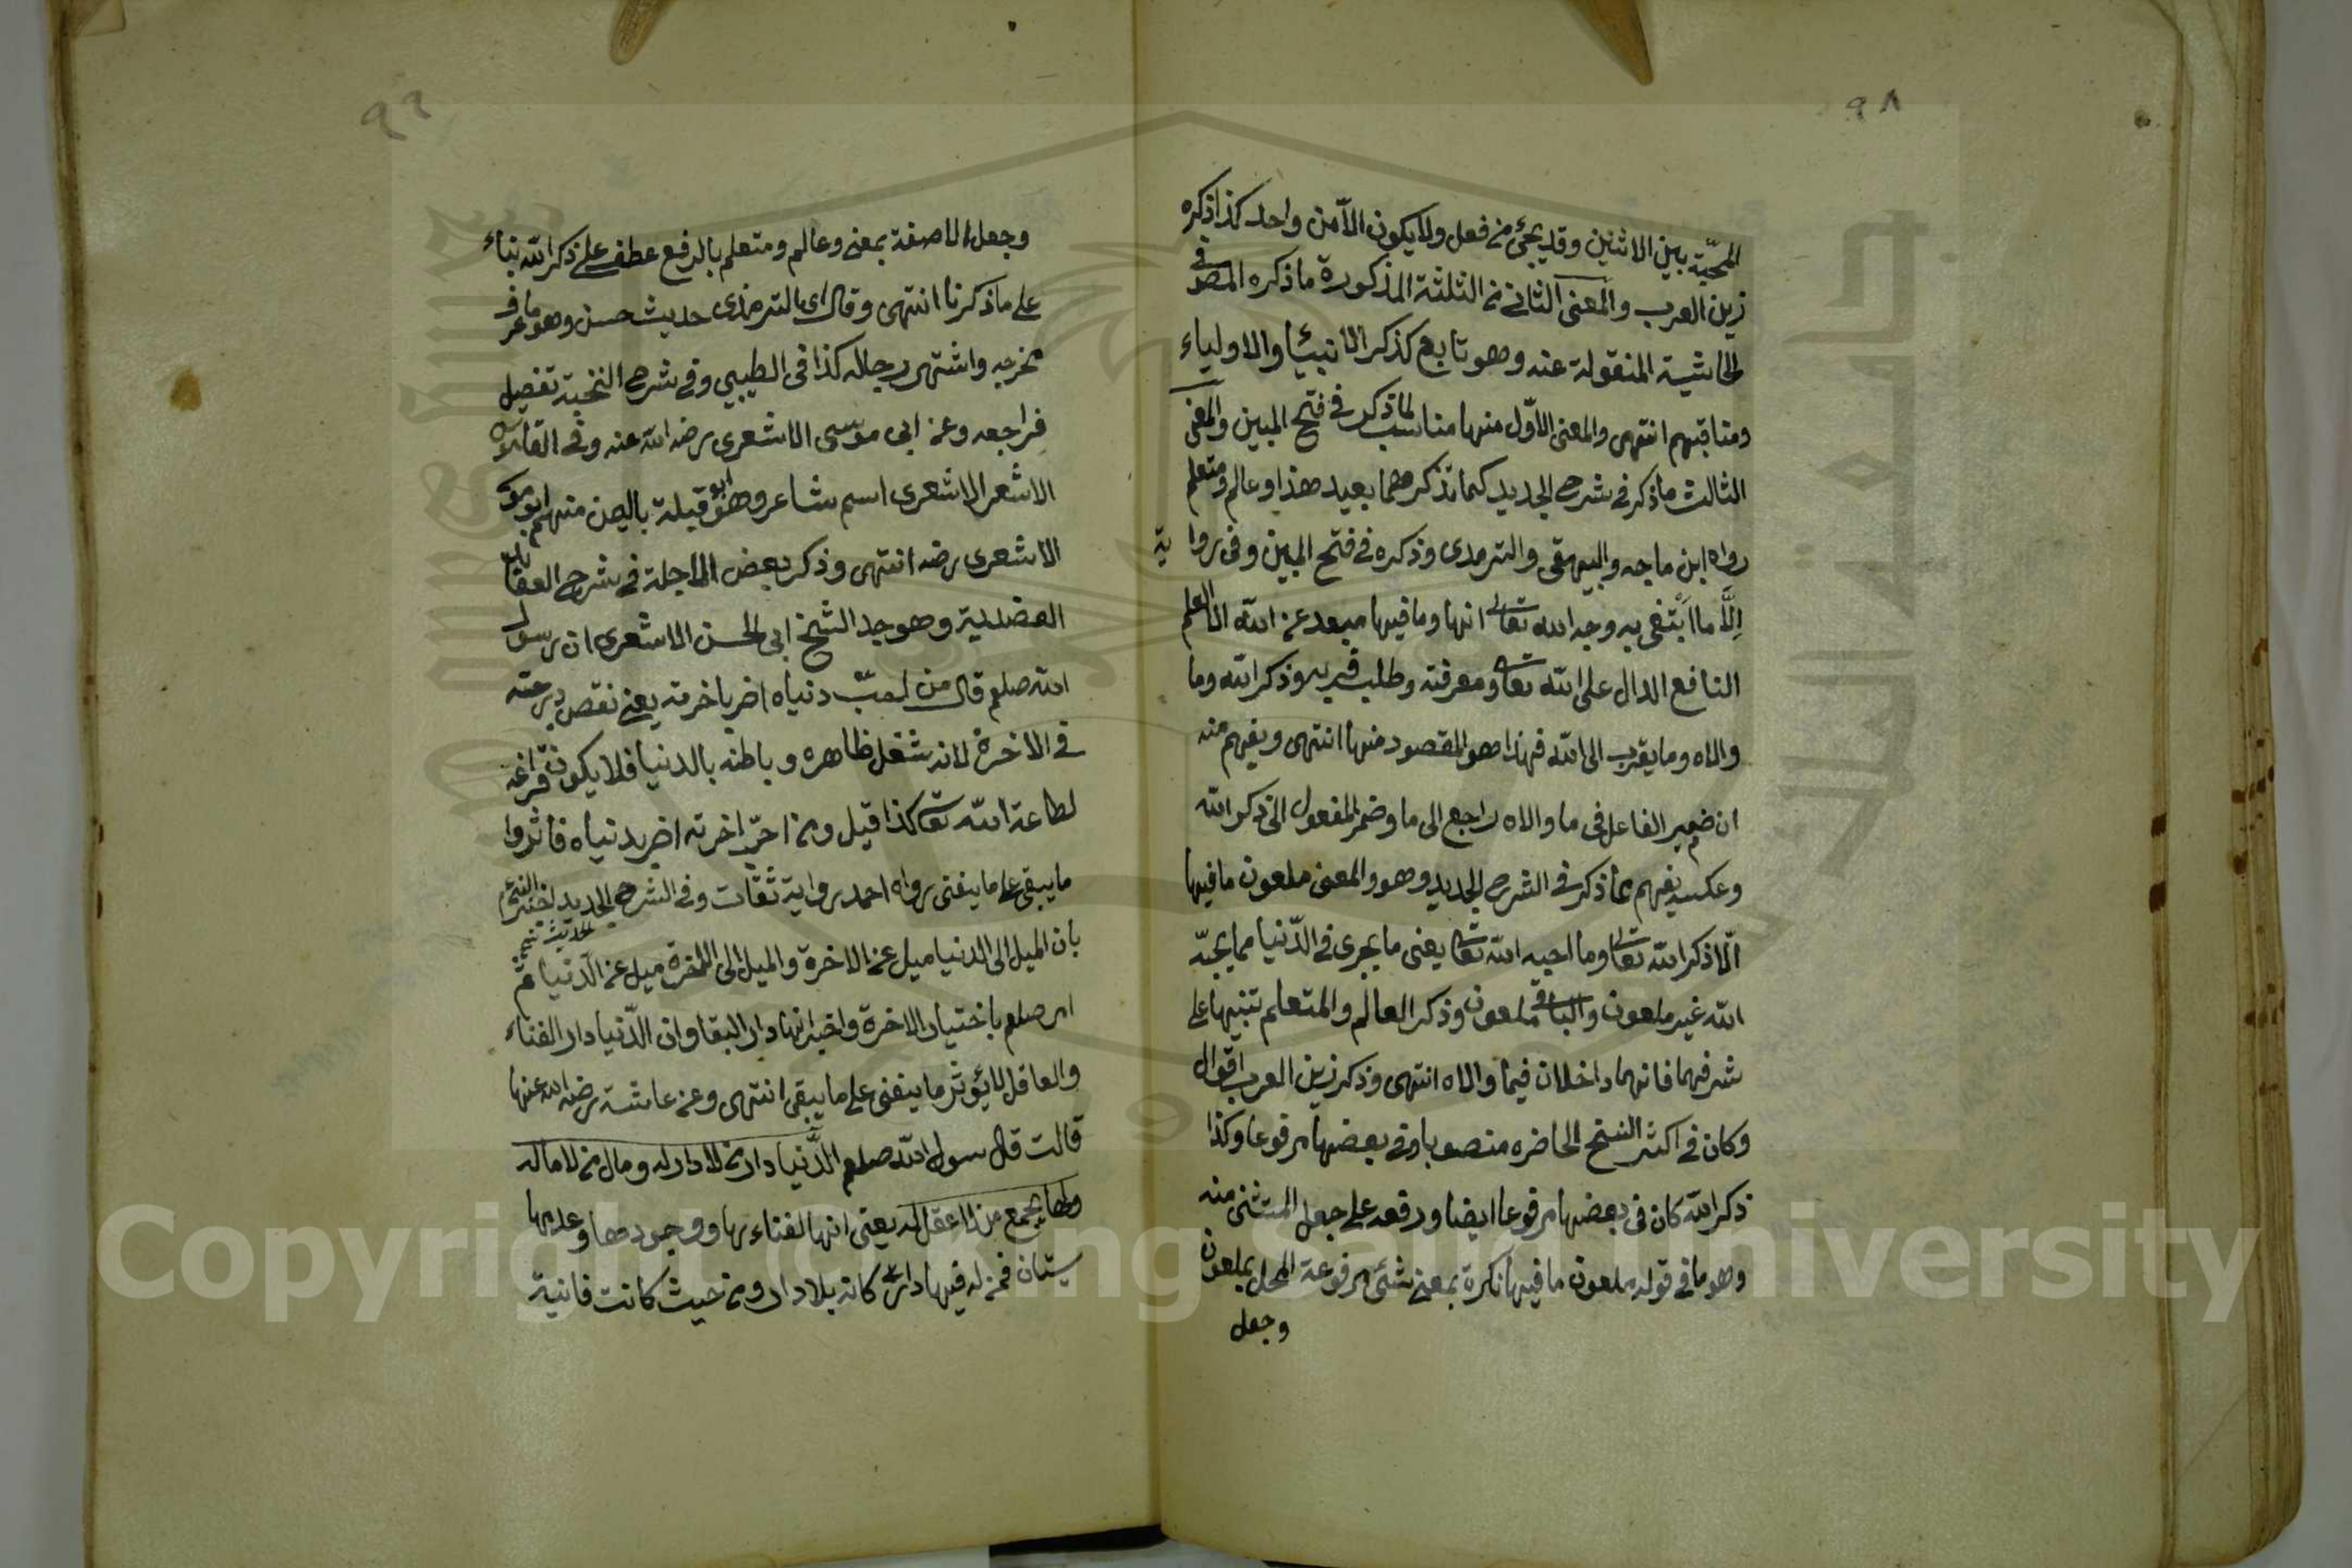 ٩٨
المحبّة بين الاثنين وقد يجئ من فعل ولا يكون الاّ من واحد كذا ذكره
زين العرب والمعنى الثانى من الثلثة المذكورة ما ذكره المص فى
الحاشية المنقولة عنه وهو تابع كذكر الانبيأ والاولياء
ومناقبهم انتهى والمعنى الاوّل منها مناسب لما ذكر فى فتح المبين والمعنى
الثالث ما ذكر فى شرح الجديد كما تذكرهما بعيد هذا او عالم ومتعلم
رواه ابن ماجه والبيهقى والترمدى وذكره فى فتح المبين وفى رواية
اِلَّا ما ابتُغى به وجه الله تعالى انها وما فيها مبعد عن الله الا العلم
النافع الدال على الله تعا ومعرفته وطلب قربه وذكر الله وما
والاه وما يقرب الى الله فهذا هو المقصود منها انتهى ويفهم منه
ان ضمير الفاعل فى ما والاه راجع الى ما وضمير المفعول الى ذكر الله
وعكسه يفهم مما ذكر فى الشرح الجديد وهو والمعنى ملعون ما فيها
الّا ذكر الله تعا وما احبه الله تعا يعنى ما يجرى فى الدّنيا مما يحبّه
الله غير ملعون والباقى ملعون وذكر العالم والمتعلم تنبيها على
شرفهما فانهما داخلان فيما والاه انتهى وذكر زين العرب اقوال
وكان فى اكثر النسخ الحاضره منصوبا وفى بعضها مرفوعا وكذا
ذكر الله كان فى بعضها مرفوعا ايضا ورفعه على جعل المستثنى منه
وهو ما فى قوله ملعون ما فيها نكرة بمعنى شئ مرفوعة المحل بملعون
وجعل
٩٩
وجعل الا صفة بمعنى وعالم ومتعلم بالرفع عطف على ذكر الله بناء
على ما ذكرنا انتهى وقال اى الترمذى حديث حسن وهو ما عرف
مخرجه واشتهر رجاله كذا فى الطيبي وفى شرح النخبة تفصيل
فراجعه وعن ابى موسى الاشعرى رضه الله عنه وفى القاموس
الاشعر الاشعرى اسم شاعر وهو ابو قبيلة باليمن منهم ابو موسى
الاشعرى رضه انتهى وذكر بعض الاجلة فى شرح العقايد
العضدية وهو جد الشيخ ابى الحسن الاشعرى ان رسول
الله صلعم قال من احبّ دنياه اضر باخرته يعنى نقص درجته
فى الاخرة لانه شغل ظاهره وباطنه بالدنيا فلا يكون فراغه
لطاعة الله تعا كذا قيل ومن احبّ اخرته اضر بدنياه فاثروا
ما يبقى على ما يفنى رواه احمد رواية ثقات وفى الشرح الجديد اخبر النبى عم
بان الميل الى الدنيا ميل عن الاخرة والميل الى الاخرة ميل عن الدّنيا ثم
امر صلعم باختيار الاخرة واخبر انها دار البقا وان الدّنيا دار الفناء
والعاقل لا يؤثر ما يفنى على ما يبقى انتهى وعن عائشة رضى الله عنها
قالت قال رسول الله صلعم الدّنيا دار من لا دار له ومال من لا مال له
ولها يجمع من لا عقل له يعنى انها لفناءها ووجودها وعدمها
سيّان فمن له فيها دار كانه بلا دار ومن حيث كانت فانية
Copyright © King Saud University